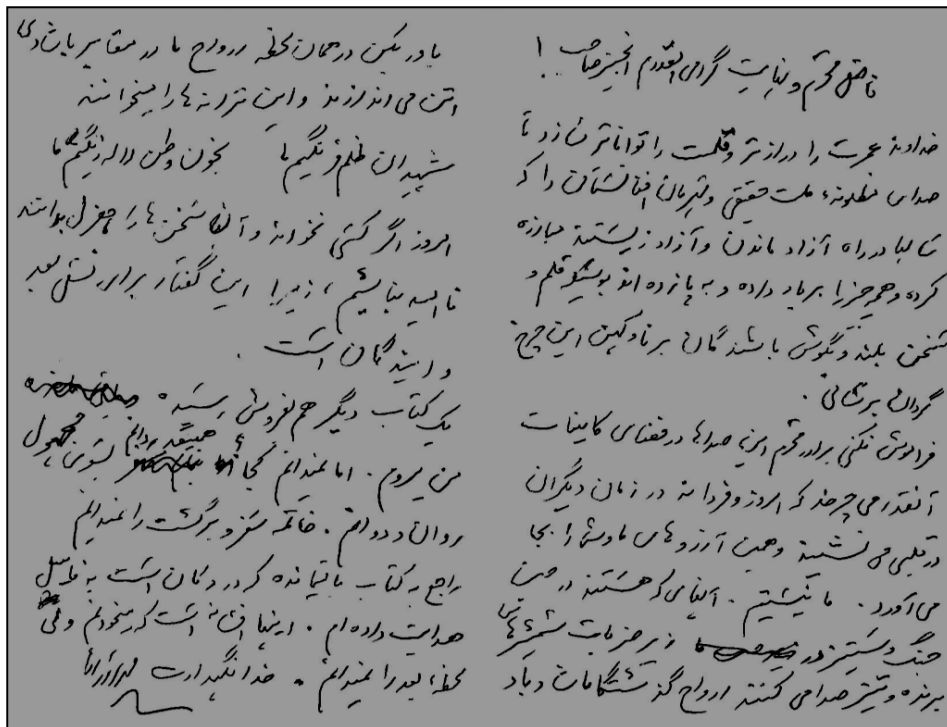 فاضل محترم و نهایت گرامی القدرم انجینر صاحب !
خداوند عمرت را درازتر و قلمت را تواناتر سازد تا
صدای مظلومند ملت حقیقی و قهرمان افغانستان را که
سالها در راه آزاد ماندن و آزاد زیستن مبارزه
کرده و همه چیز را برباد داده و به پا زده اند بوسیله قلم و
سخن بلند و بگوش باشندگان برنا و کهن این چرخ
گردان برسانی .
فراموش نکنی برادر محترم این صداها در فضای کاینات
آنقدر می چرخد که امروز و فردا نه در زمان دیگران
در قلبی می نشیند و همین آرزوهای ما و شما را بجا
می آورد . ما نیستیم . آنهای که هستند در حین
جنگ و ستیز در زیر ضربات شمشیرهای
برنده و تیز صدا می کنند ارواح گذشتگان ما و باد
باور کن در همان لحظه ارواح ما در مقابر با شادی
اتن می اندازند و این ترانه ها را میخوانند
شهیدان ظلم فرنگیم ما بخون وطن لاله رنگیم ما
امروز اگر کسی نخواند و آنها سخن ها را هزل بدانند
نا امید نباشیم ، زیرا این گفتار برای نسل بعد
و آیندگان است .
یک کتاب دیگر هم بفروش رسید .
من میروم . اما نمیدانم کجا ؟ همینقدر میدانم بسوی مجهول
روان و دوانم . خاتمه سفر و برگشت را نمیدانم
راجع به کتاب باقیمانده که در دکان است به فاضل
هدایت داده ام . اینها افسانه است که میخوانم ولی
لحظه بعد را نمیدانم . خدا نگهدارت